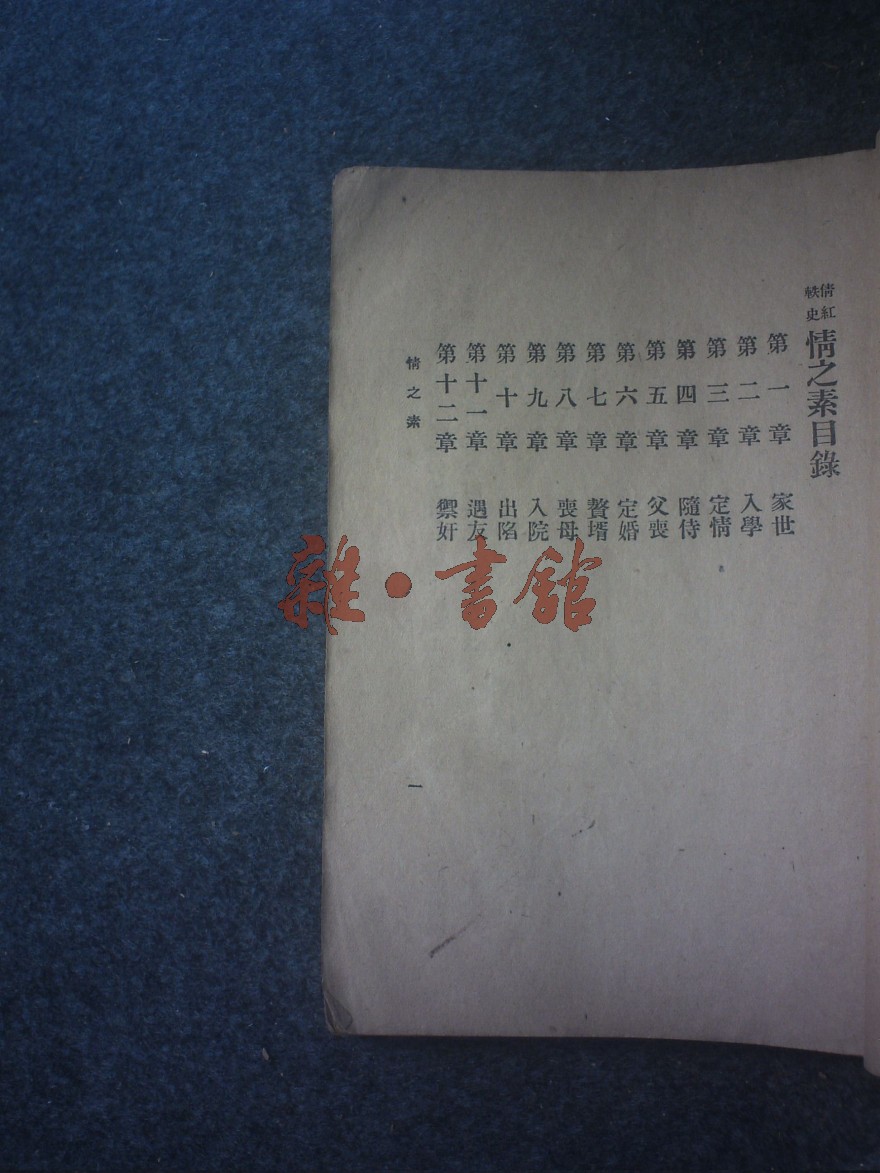 倩紅
軼史
情之素目錄
第一章 家世
第二章 入學
第三章 定情
第四章 隨侍
第五章 父喪
第六章 定婚
第七章 贅壻
第八章 喪母
第九章 入院
第十章 出陷
第十一章 遇友
第十二章 禦奸
情之素
一
雜·書館